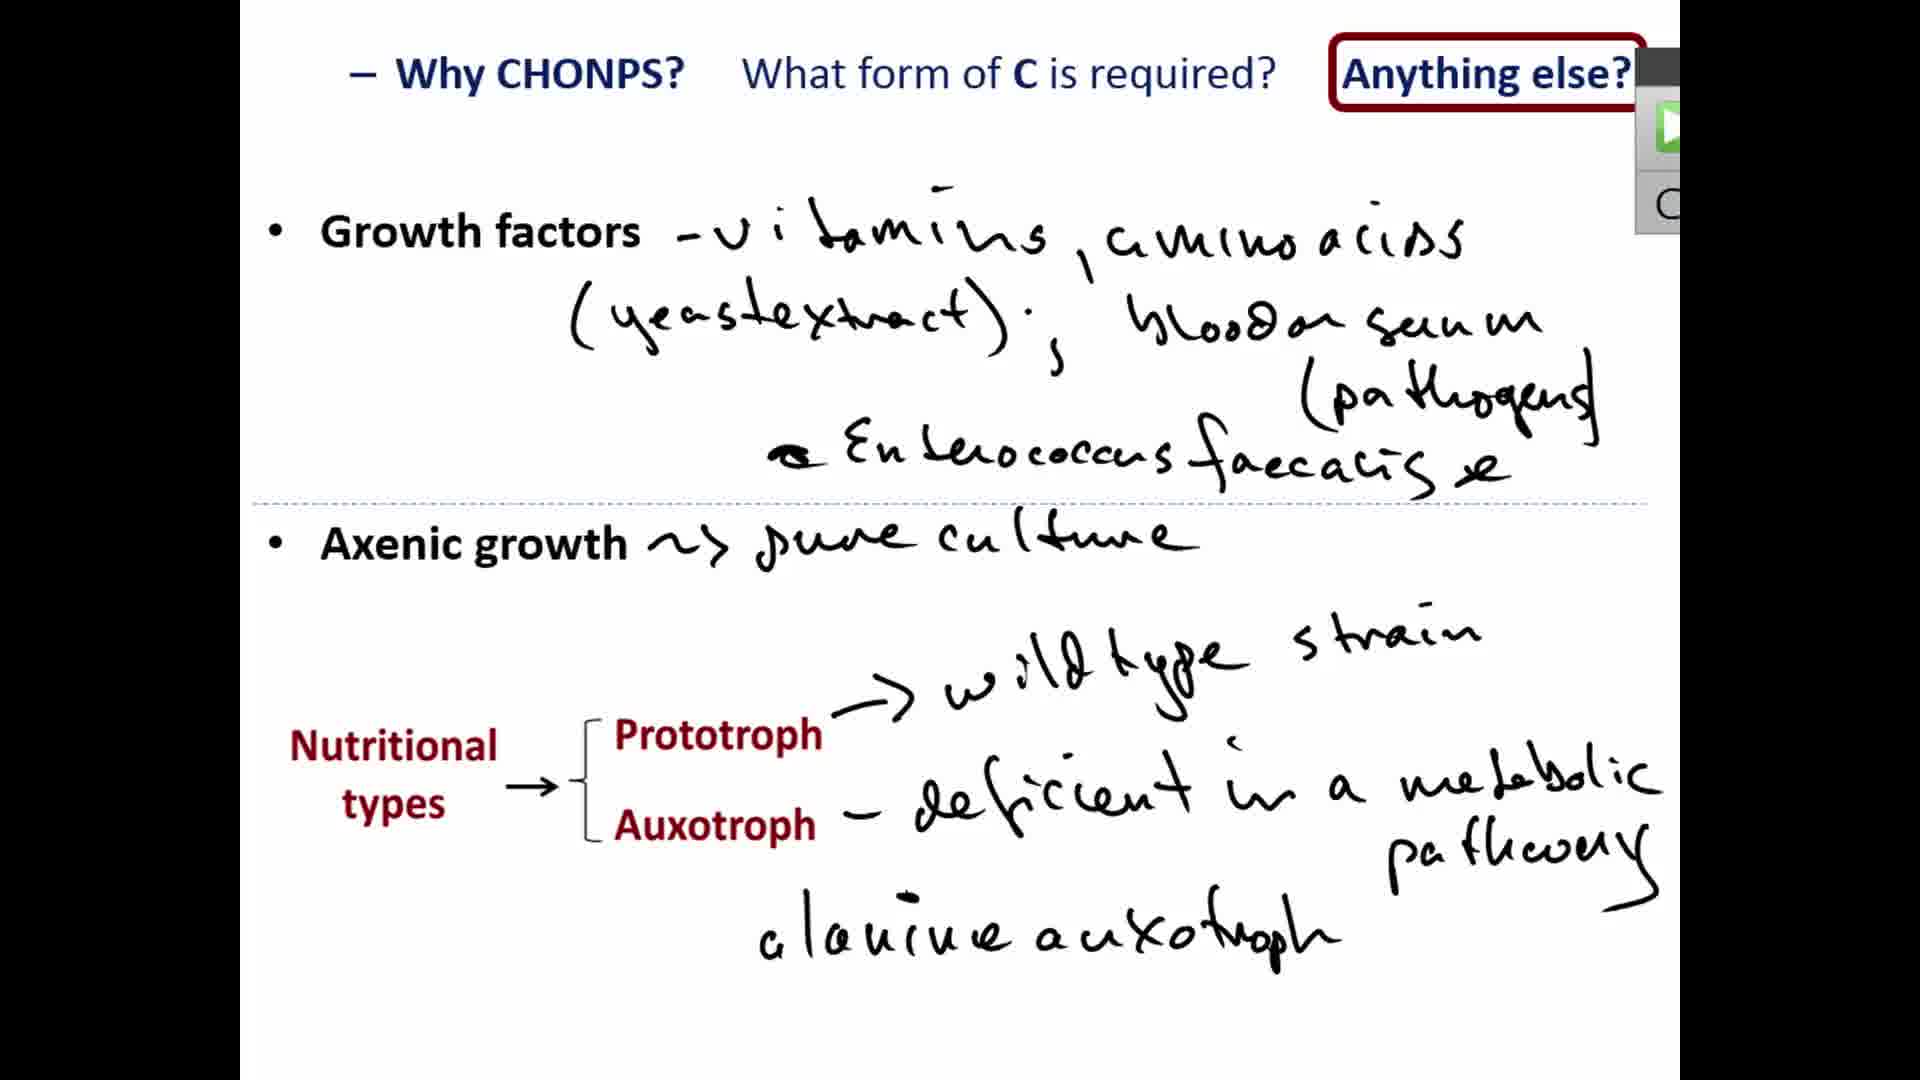 – Why CHONPS? What form of C is required? Anything else?
• Growth factors - vitamins, amino acids
(yeast extract); blood or serum
(pathogens)
- Enterococcus faecalis
• Axenic growth ~> pure culture
Nutritional types → Prototroph → wild type strain
Auxotroph - deficient in a metabolic
pathway
alanine auxotroph